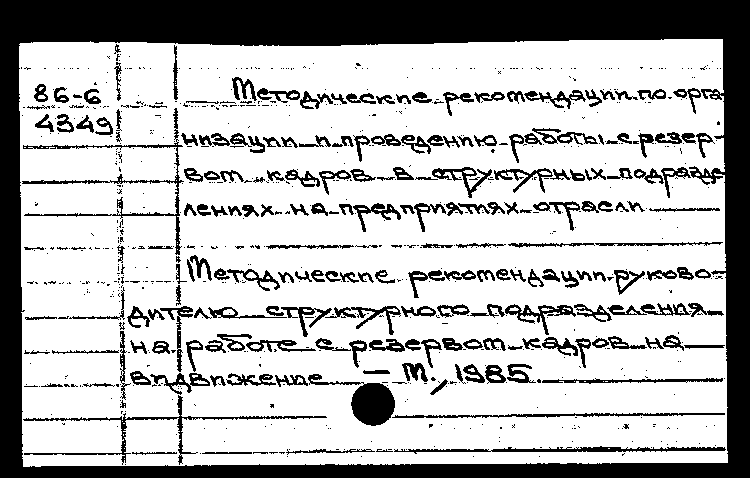 86-6
4349
Методические рекомендации по орга-
низации и проведению работы с резер-
вом кадров в структурных подразде-
лениях на предприятиях отрасли
Методические рекомендации руково-
дителю структурного подразделения
на работе с резервом кадров на
видвижение — М., 1985.